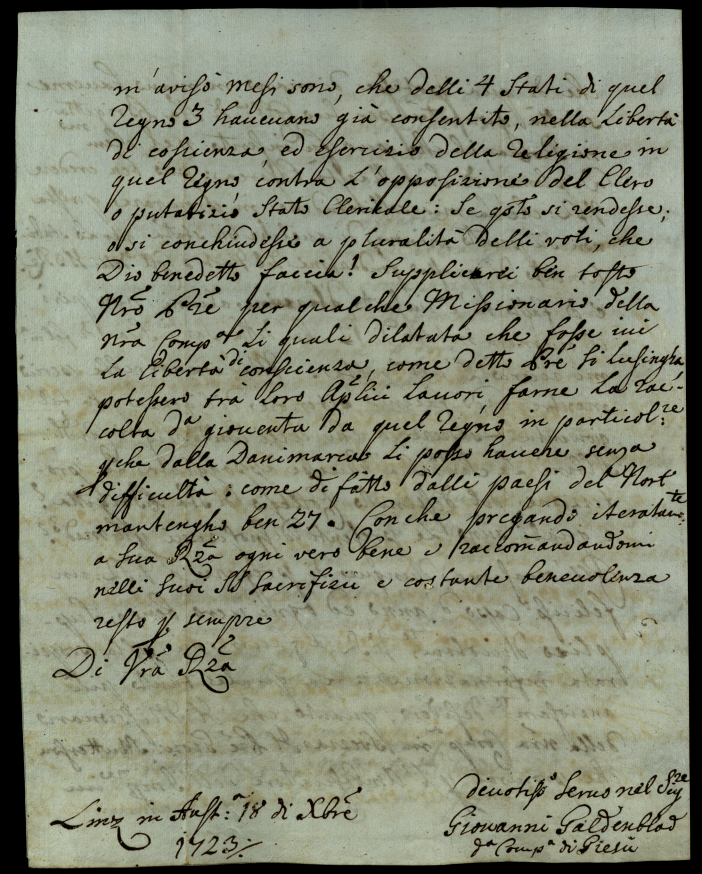 m'avisò mesi sono, che delli 4 Stati di quel
Regno 3 haveuano già consentito, nella Libertà
di cosicienza, ed esercizio della Religione in
quel Regno contra l'opposizione del Clero
o putatizio Stato Clericale: Se qsto si rendesse,
o si conchiudesse a pluralità delli voti, che
Dio benedetto faccia! Supplicarei ben tosto
Nrõ Prẽ per qualche Missionario della
nrã Compª li quali dilatata che fosse ivi
la libertà di conscienza, come detto Prẽ si lusingha
potessero trà loro Aplici lavori farne la rac-
colta dª gioventu da quel Regno in particolre
che dalla Danimarca li posso havere senza
difficultà: come di fatto dalli paesi del Nort
mantengho ben 27. Con che pregando iteratamte
a Sua Rzã ogni vero bene e raccom̃andandomi
nelli suoi Sti Sacrifizii e costante benevolenza
resto p sempre
Di Vrã Rzã
devotisso Servo nel Sigre
Linz in Austª 18 di Xbrẽ
1723/:
Giovanni Galdenblad
dª Compª di Giesù